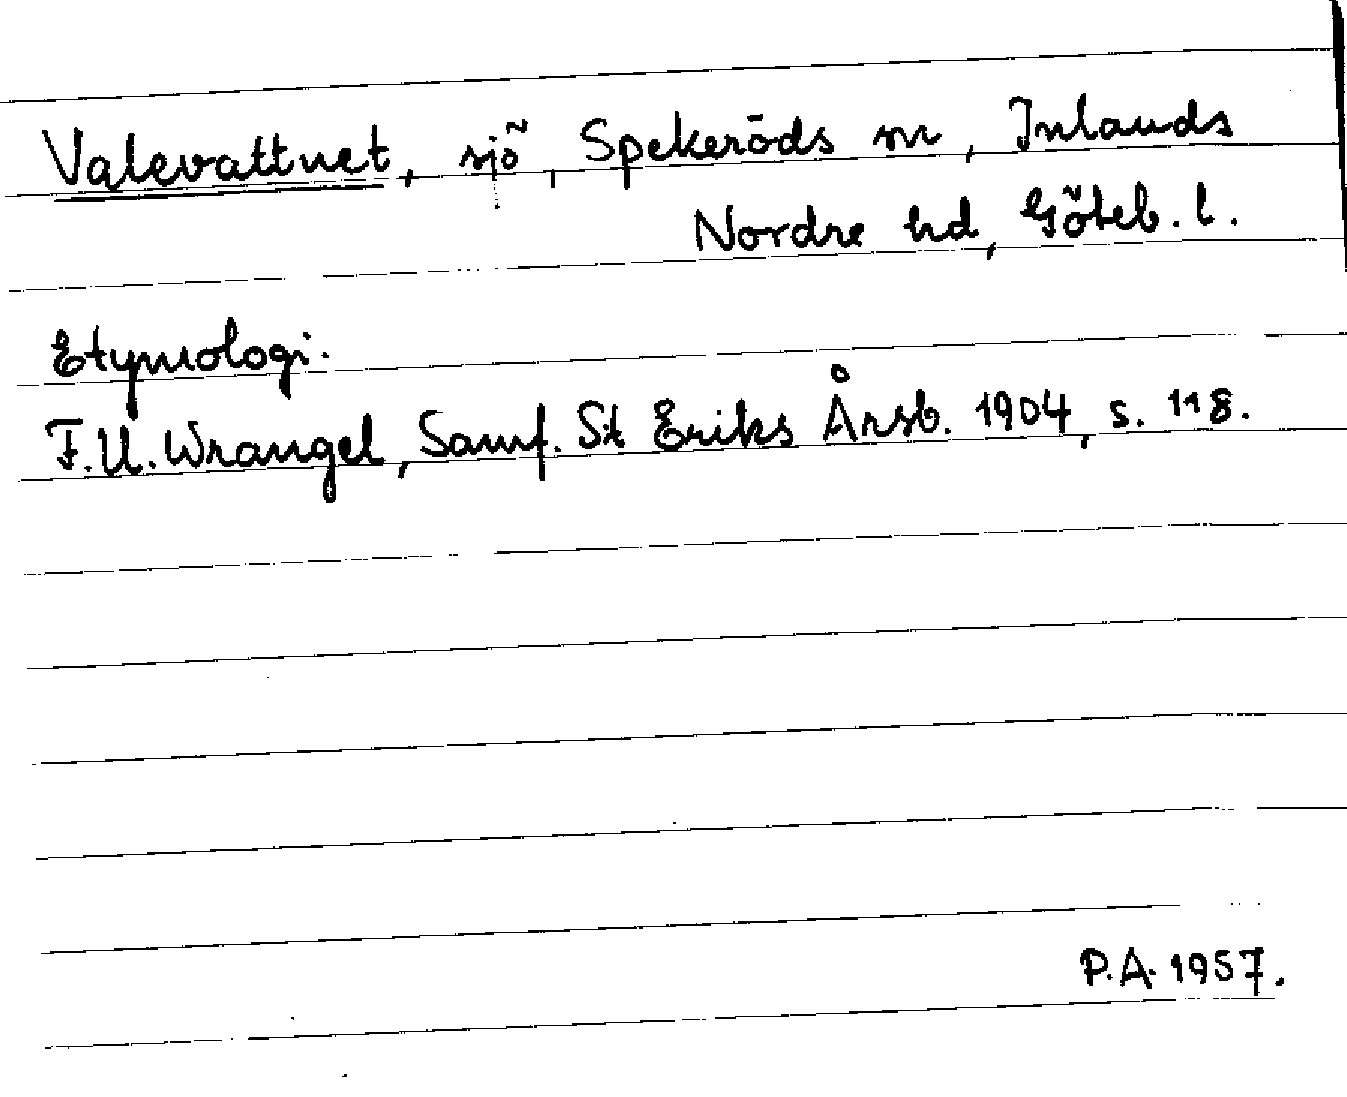 Valevattnet, sjö, Spekeröds sn, Inlands
Nordre hd, Göteb. l.
Etymologi.
F.U. Wrangel, Samf. St Eriks Årsb. 1904, s. 118.
P.A. 1957.